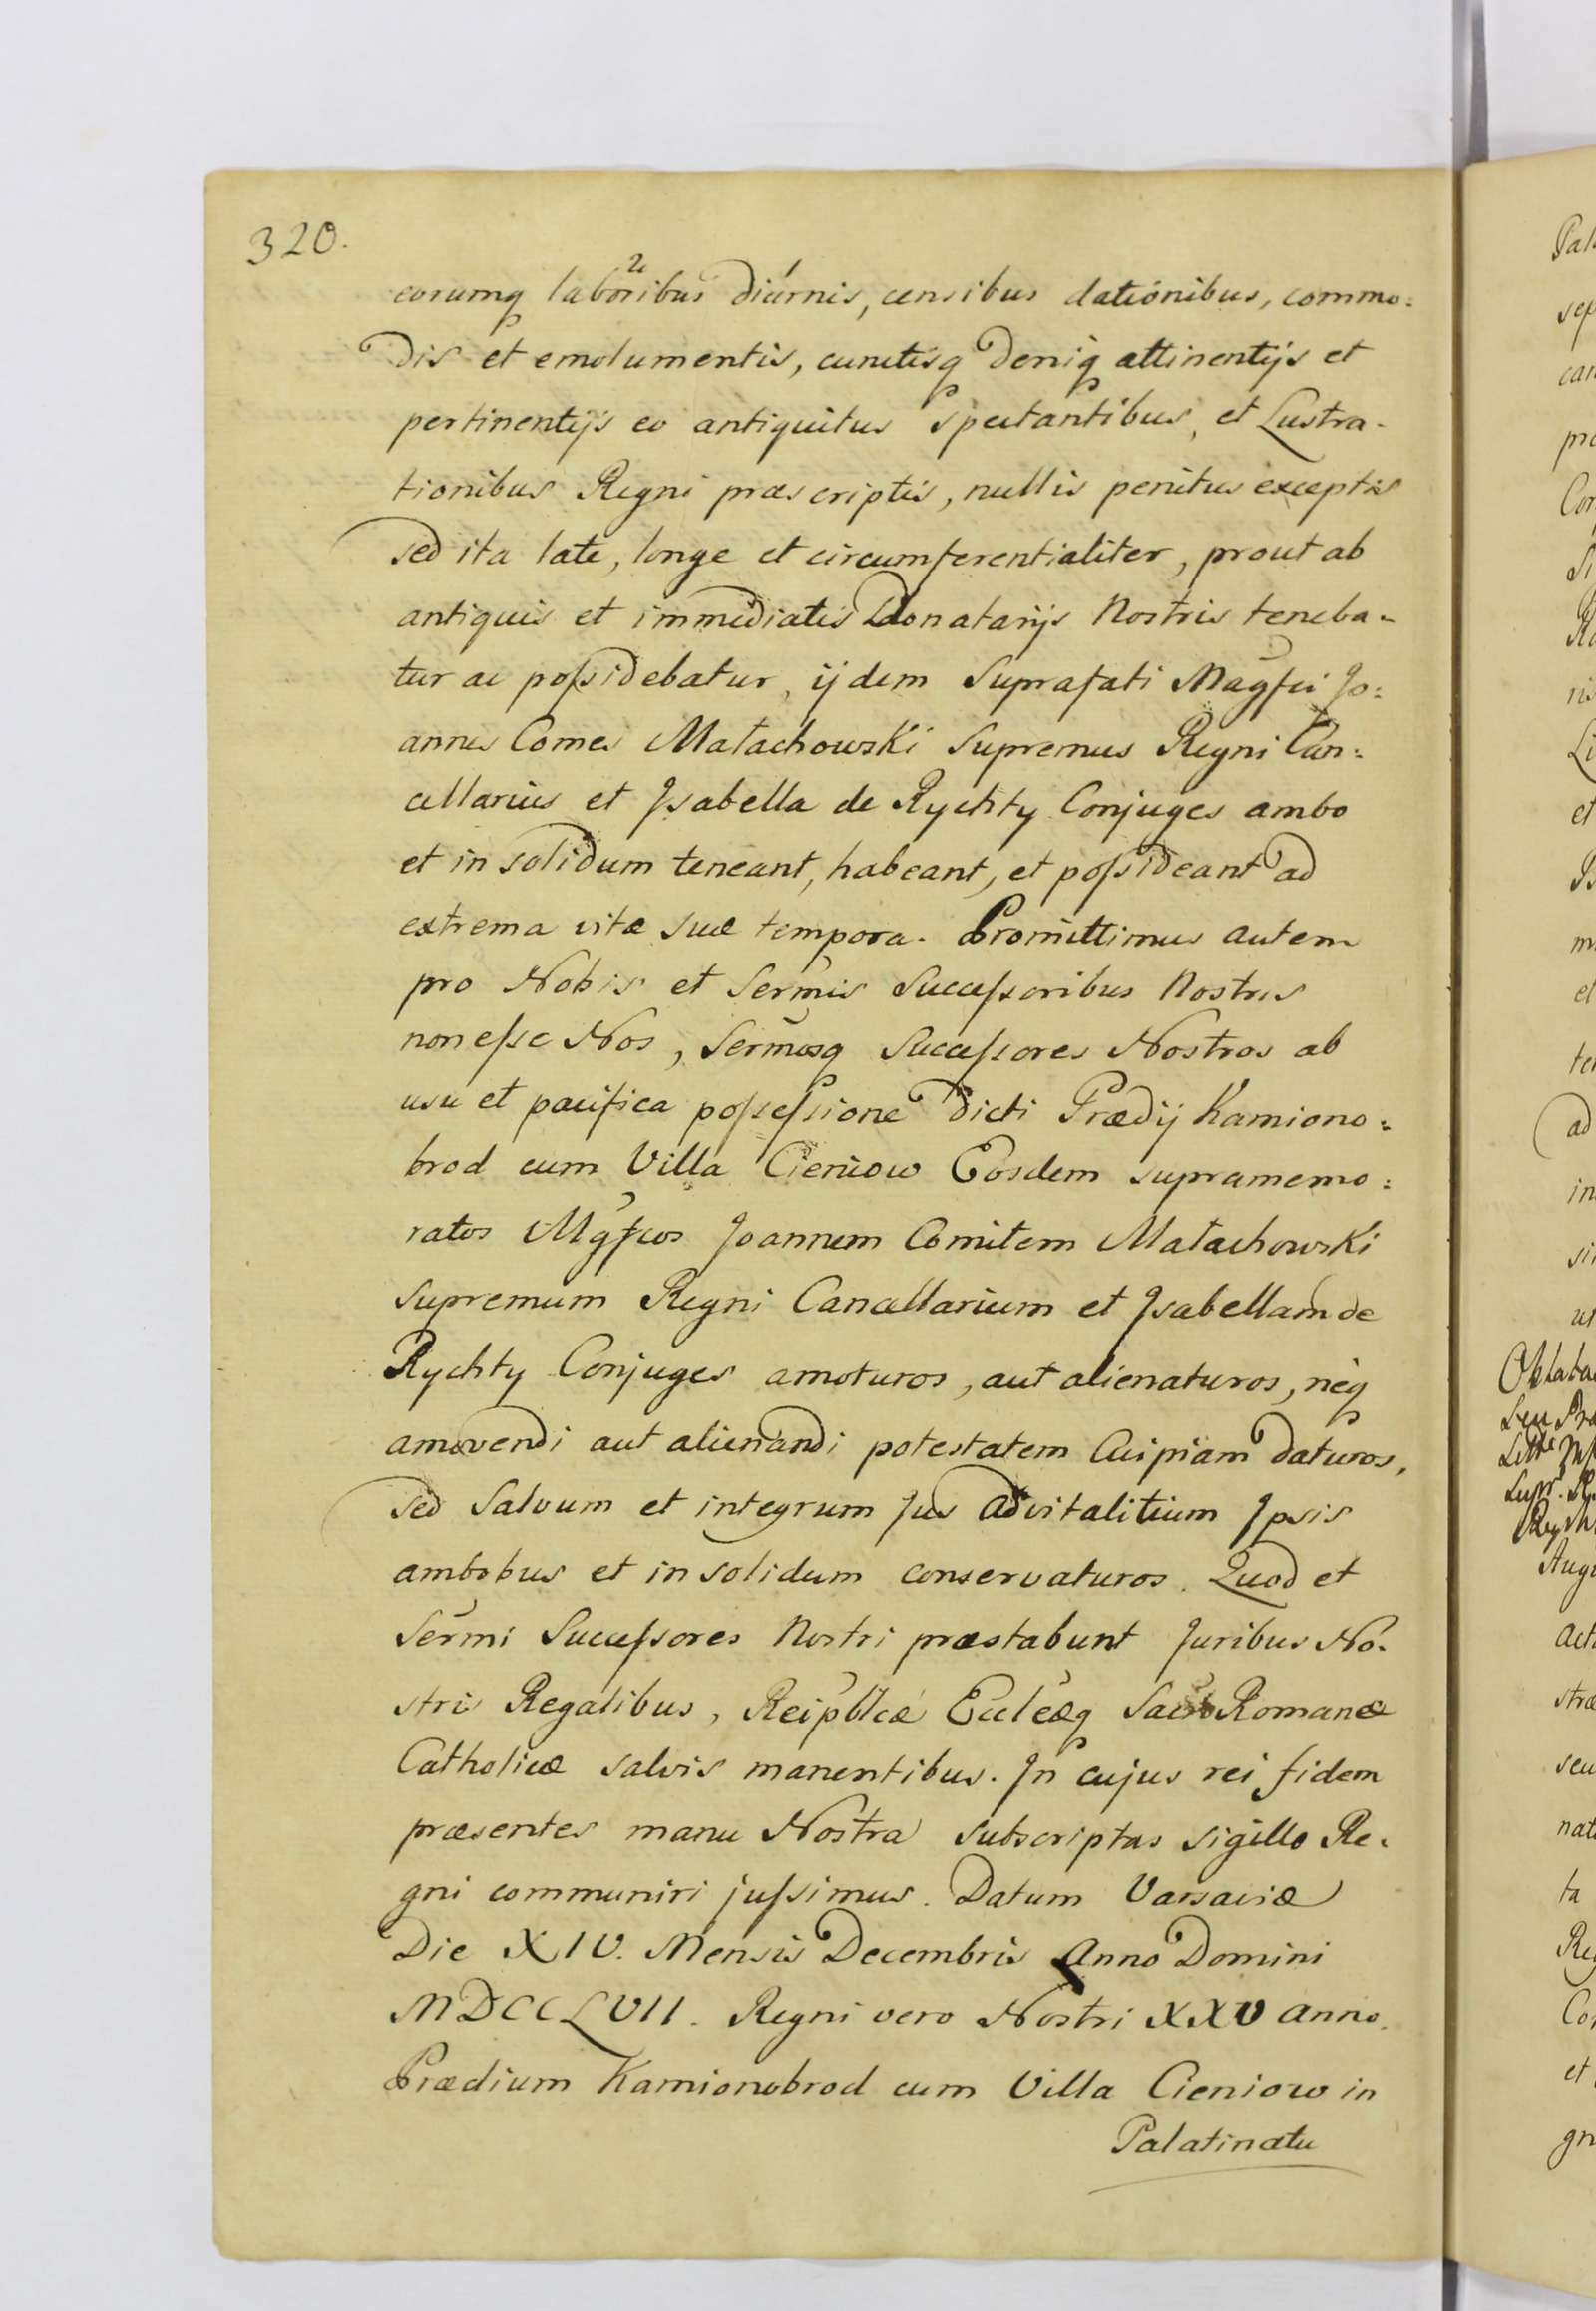 320.
eorumq laboribus diurnis, censibus dationibus, commo:
dis et emolumentis, cunctisq deniq attinentijs et
pertinentijs eo antiquitus spectantibus, et Lustra-
tionibus Regni præscriptis, nullis penitus exceptis
sed ita late, longe et circumferentialiter, prout ab
antiquis et immediatis Donatarijs Nostris teneba-
tur ac poſsidebatur, ijdem Suprafati Magfci Jo:
annes Comes Małachowski Supremus Regni Can:
cellarius et Jsabella de Rychty Conjuges ambo
et in solidum teneant, habeant, et poſsideant ad
extrema vitæ suæ tempora. Promittimus autem
pro Nobis et Sermis Succeſsoribus Nostris
non eſse Nos, Sermosq Succeſsores Nostros ab
usu et pacifica poſseſsione dicti Prædij Kamiono:
brod cum Villa Cieniow Eosdem supramemo:
ratos Mgfcos Joannem Comitem Małachowski
Supremum Regni Cancellarium et Jsabellam de
Rychty Conjuges amoturos, aut alienaturos, neq
amovendi aut alienandi potestatem Cuipiam daturos,
sed Salvum et integrum Jus advitalitium Jpsis
ambobus et in solidum conservaturos. Quod et
Sermi Succeſsores Nostri præstabunt Juribus No-
stris Regalibus, Reipblcæ Eccleæq Romanæ
Catholicæ salvis manentibus. Jn cujus rei fidem
præsentes manu Nostra subscriptas sigillo Re-
gni communiri juſsimus. Datum Varsaviæ
Die XIV. Mensis Decembris Anno Domini
MDCCLVII. Regni vero Nostri XXV anno.
Prædium Kamionobrod cum Villa Cieniow in
Palatinatu